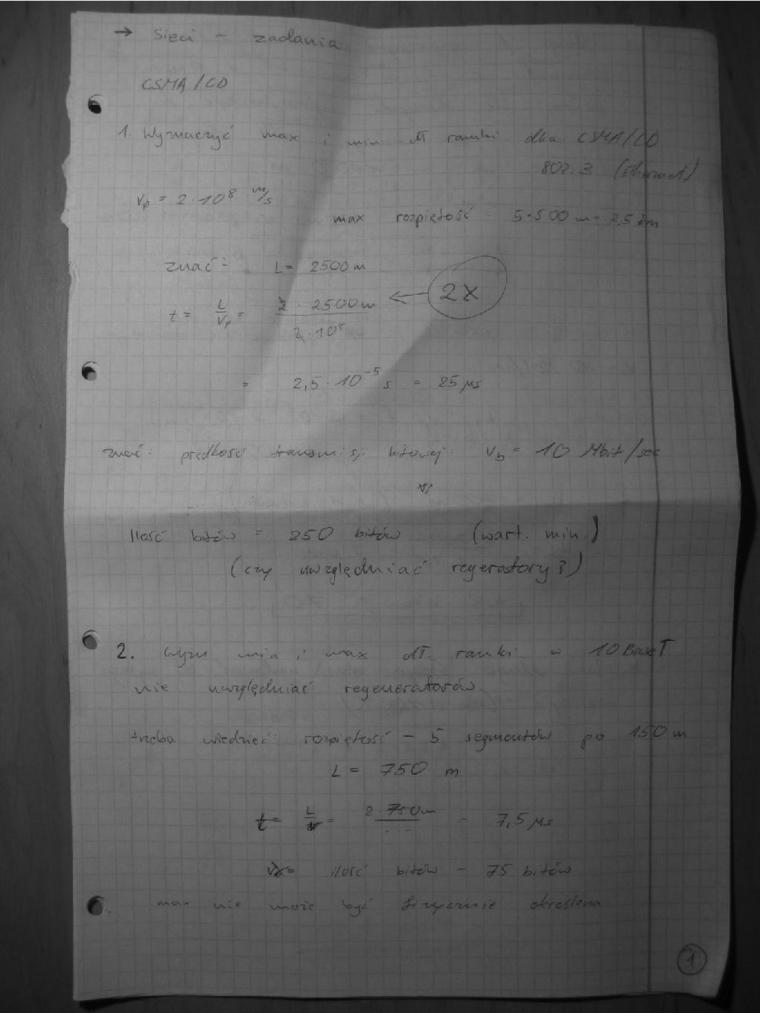 → Sieci - zadania
CSMA/CD
1. Wyznaczyć max i min dł ramki dla CSMA/CD
802.3 (Ethernet)
Vp = 2·10⁸ m/s
max rozpiętość - 5·500 m = 2,5 km
znać: L = 2500 m
t = L/Vp = 2·2500m / 2·10⁸ ← 2x
= 2,5·10⁻⁵ s = 25 μs
znać: prędkość transmisji bitowej: Vb = 10 Mbit/sec
Ilość bitów = 250 bitów (wart. min.)
(czy uwzględniać regeratory?)
2. Wyzn min i max dł. ramki w 10BaseT
nie uwzględniać regeneratorów
trzeba wiedzieć rozpiętość - 5 segmentów po 150 m
L = 750 m
t = L/ = 2·750m / .. = 7,5 μs
ilość bitów - 75 bitów
max nie może być fizycznie określona
1